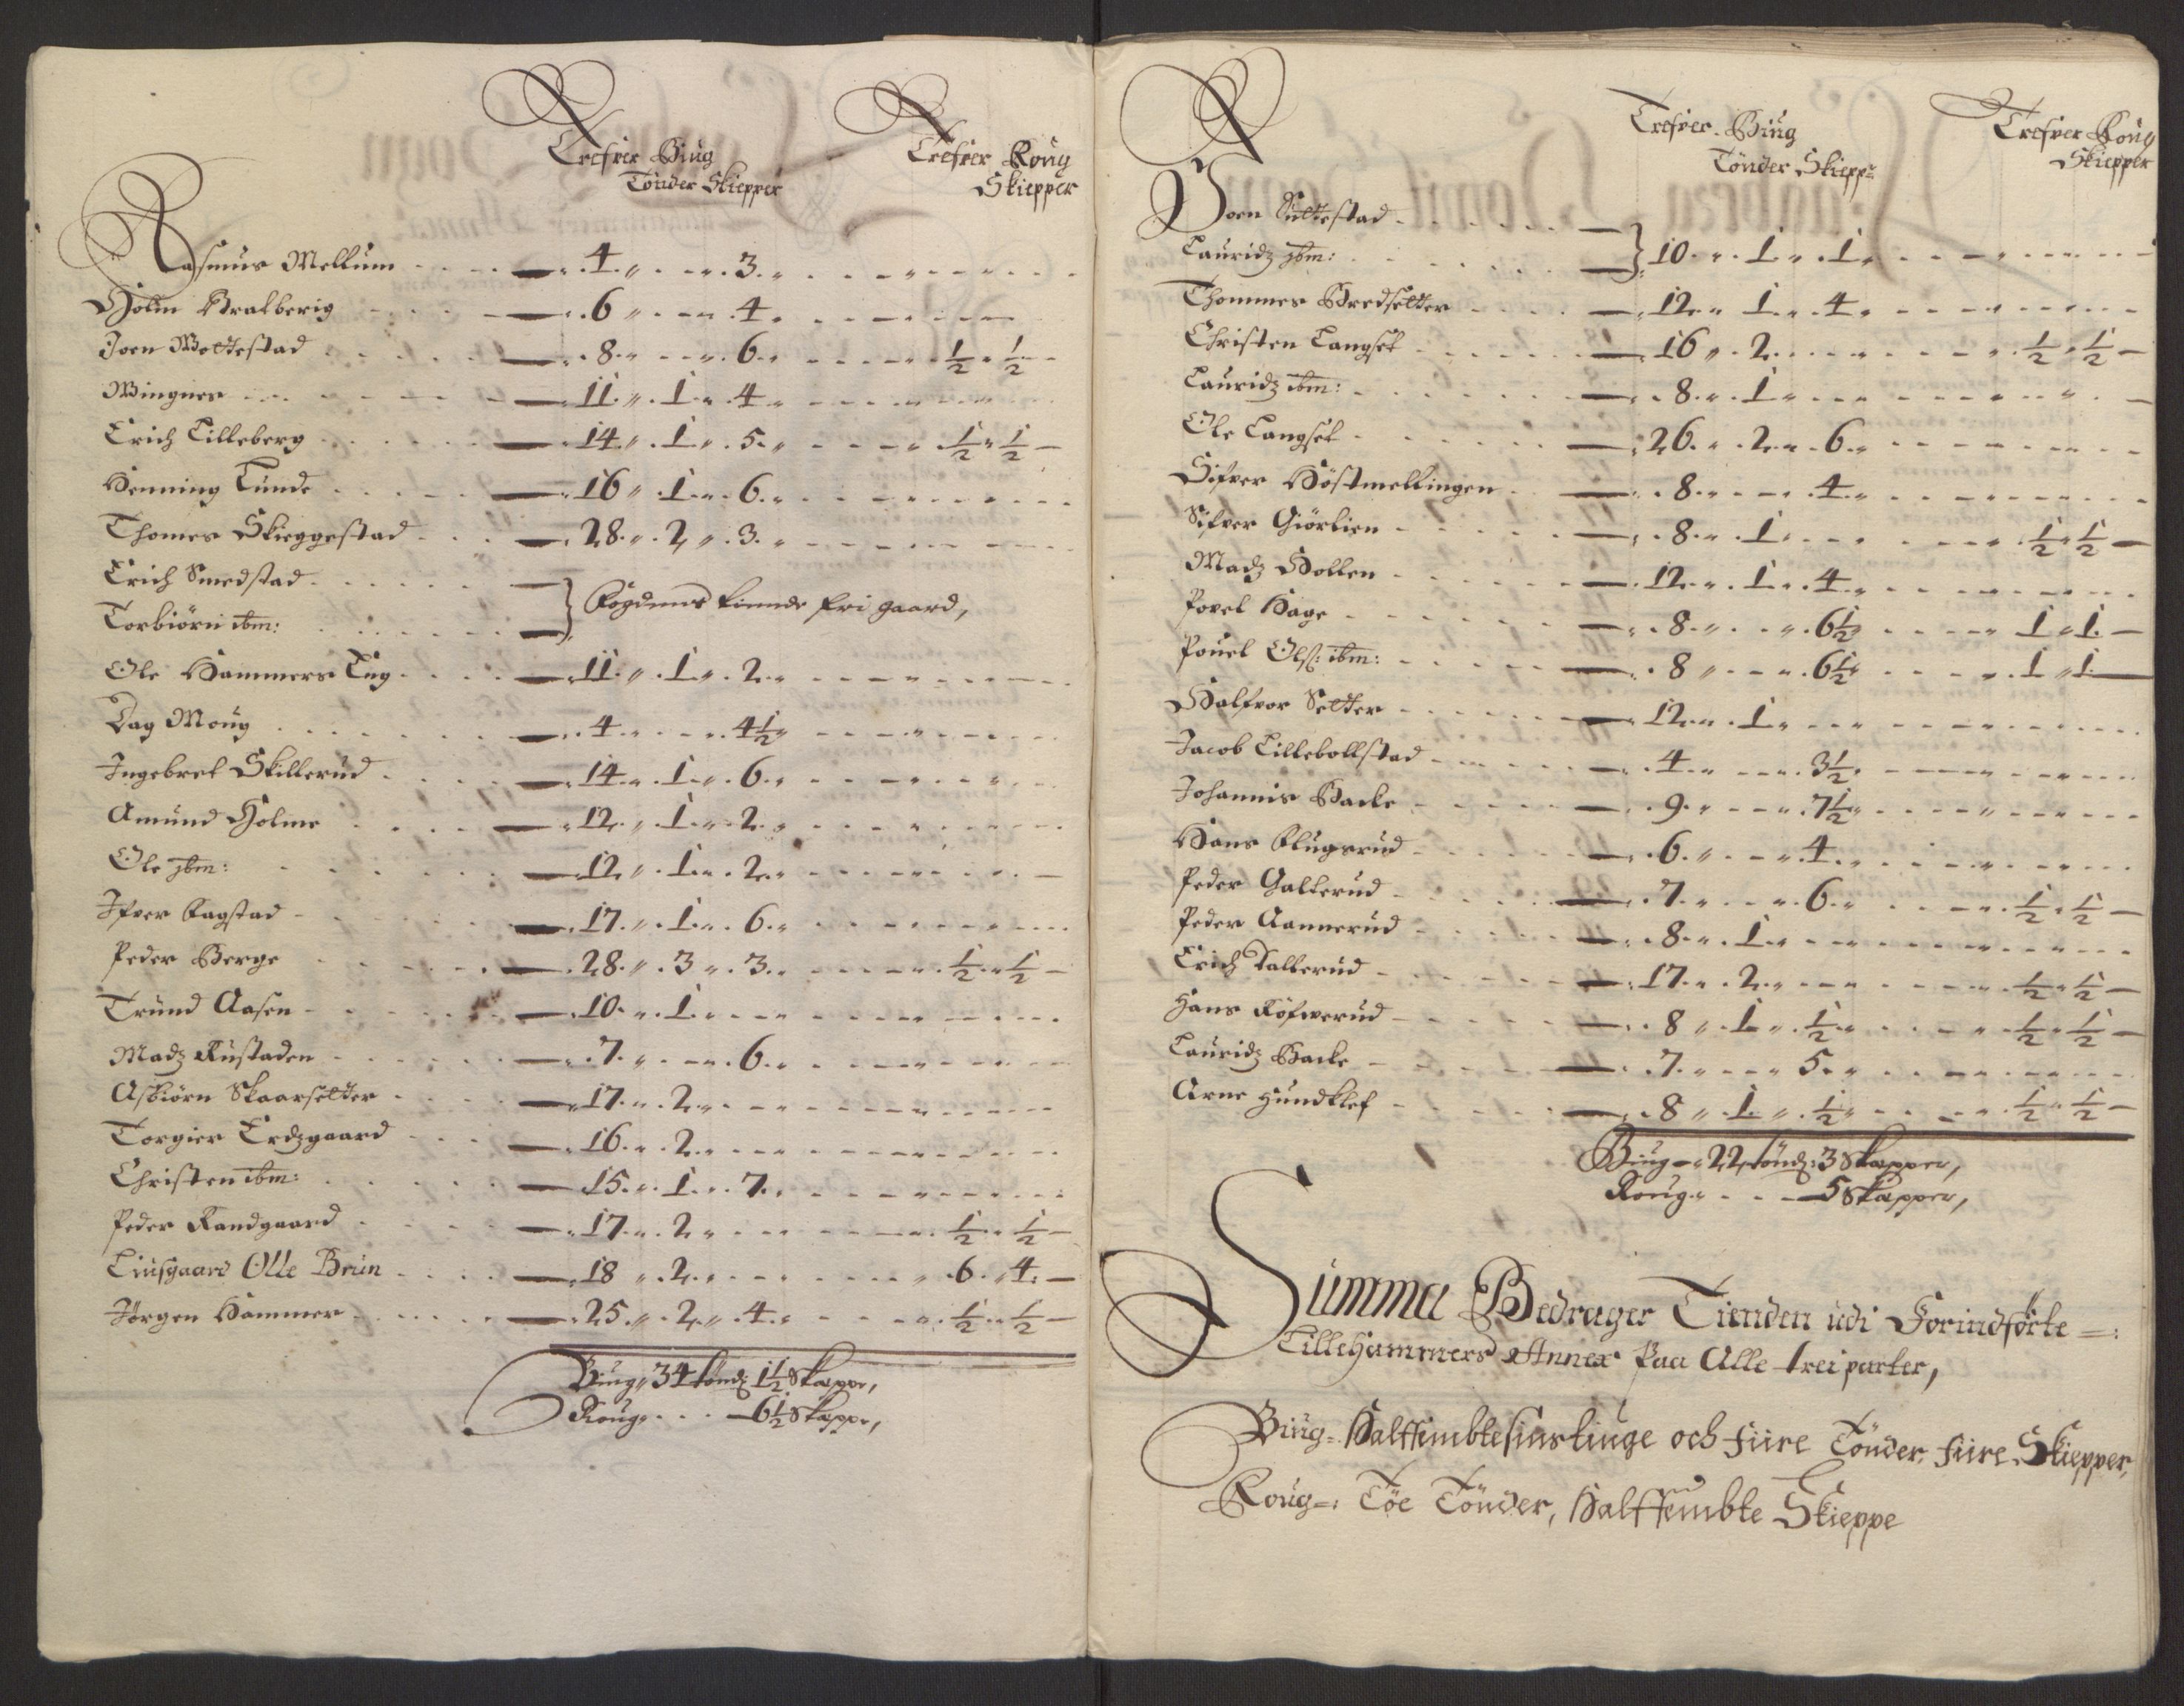 Trefver Biug
Tønder Skiepper
Trefver Roug
Skiepper
Rasmus Mellum - 4 " - " 3 "
Holm Bralberig - 6 " - " 4
Joen Woltestad - 8 " - " 6 " - " 1/2 " 1/2
Wingnes - 11 " 1 " 4 "
Erich Lilleberg - 14 " 1 " 5 " - " 1/2 " 1/2
Henning Lunde - 16 " 1 " 6 "
Thomes Skieggestad - 28 " 2 " 3 "
Erich Smedstad
Torbiørn ibm: } Fogdens tiende fri gaard,
Ole Hammers Eng - 11 " 1 " 2 "
Dag Moug - 4 " - " 4 1/2 "
Ingebret Skillerud - 14 " 1 " 6 "
Amund Holme - 12 " 1 " 2 "
Ole ibm: - 12 " 1 " 2 "
Ifver Fagstad - 17 " 1 " 6 "
Peder Berge - 28 " 3 " 3 " - " 1/2 " 1/2
Trund Aasen - 10 " 1 "
Madz Rustaden - 7 " - " 6 "
Asbiørn Skaarsetter - 17 " 2 "
Torgier Erdzgaard - 16 " 2 "
Christen ibm: - 15 " 1 " 7 "
Peder Randgaard - 17 " 2 " - " 1/2 " 1/2
Liusgaard Olle Brun - 18 " 2 " - " 6 " 4
Jørgen Hammer - 25 " 2 " 4 " - " 1/2 " 1/2
Biug " 34 tønd: 1 1/2 Skeppe,
Roug " - 6 1/2 Skeppe,
Trefver Biug
Tønder Skiepp:
Trefver Roug
Skiepper
Joen Sultestad
Lauridz ibm: } 10 " 1 " 1 "
Thommes Bredsetter - 12 " 1 " 4 "
Christen Langset - 16 " 2 " - " 1/2 " 1/2
Lauridz ibm: - 8 " 1 "
Ole Langset - 26 " 2 " 6 "
Sifver Høstmellingen - 8 " - 4 "
Sifver Giørlien - 8 " 1 " - " 1/2 " 1/2
Madz Hollen - 12 " 1 " 4 "
Povel Hage - 8 " - " 6 1/2 " - " 1 " 1
Pouel Ols: ibm: - 8 " - " 6 1/2 " - " 1 " 1
Halfvor Setter - 12 " 1 "
Jacob Lillebollstad - 4 " - " 3 1/2 "
Johannis Backe - 9 " - " 7 1/2 "
Hans Flugsrud - 6 " - " 4 "
Peder Galterud - 7 " - " 6 " - " 1/2 " 1/2
Peder Aannerud - 8 " 1 "
Erich Kallerud - 17 " 2 " - " 1/2 " 1/2
Hans Røfverud - 8 " 1 " 1/2 " - " 1/2 " 1/2
Lauridz Backe - 7 " - " 5 "
Arne Hundklef - 8 " 1 " 1/2 " - " 1/2 " 1/2
Biug " 22 tønd: 3 Skepper,
Roug " - 5 Skepper,
Summa Bedrager Tienden udi Forindførte =:
Lillehammers Annex Paa Alle trei parter,
Biug =. Halffembtesinstiuge och fiire Tønder, fiire Skiepper,
Roug =: Toe Tønder, Halffembte Skieppe